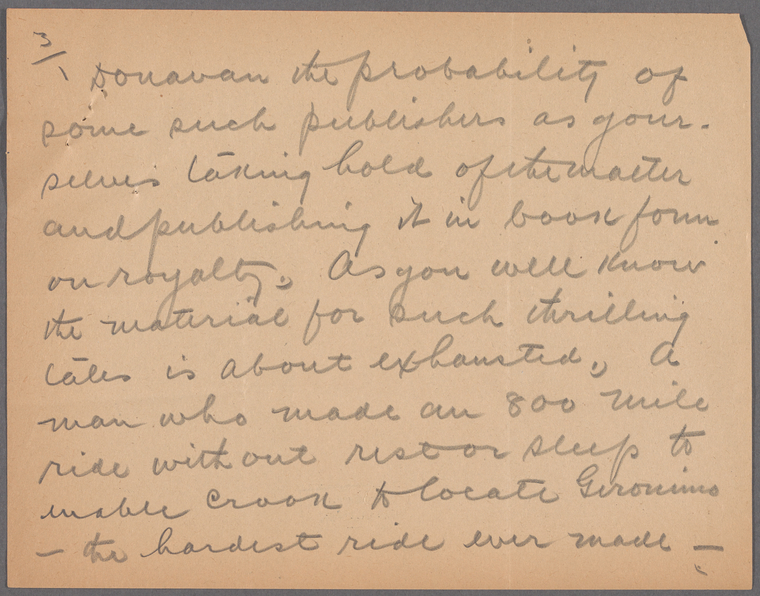 3/
Donavan the probability of
some such publishers as your-
selves taking hold of the matter
and publishing it in book form
on royalty. As you well know
the material for such thrilling
tales is about exhausted. A
man who made an 800 mile
ride without rest or sleep to
enable Crook to locate Geronimo
— the hardest ride ever made —